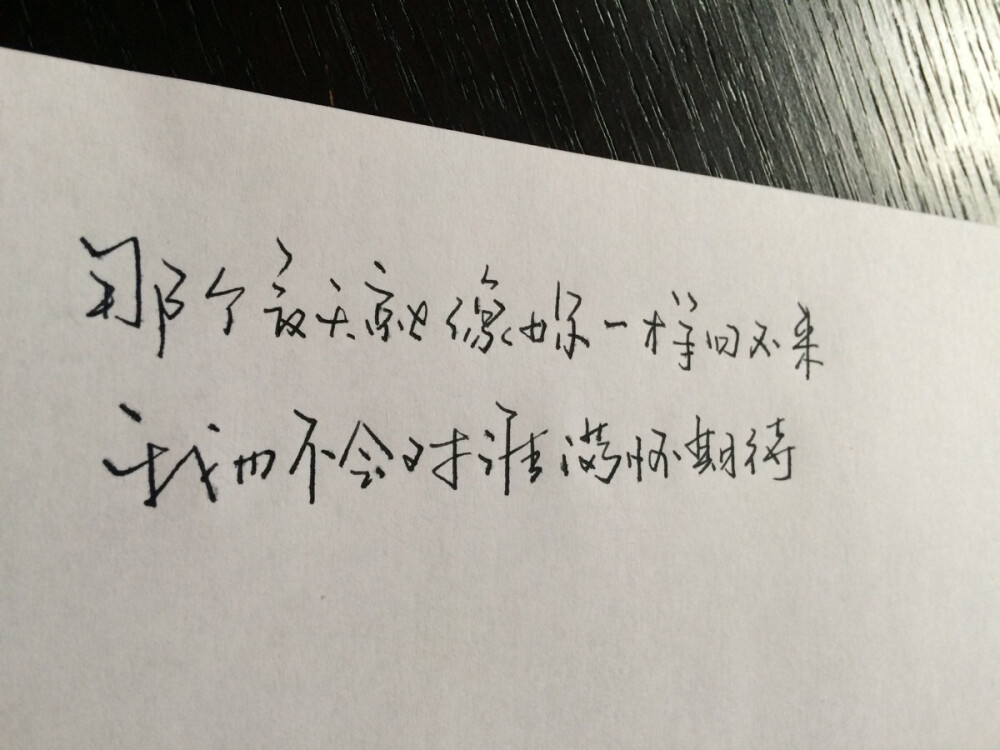 那个夏天就像你一样回不来
我也不会对谁满怀期待